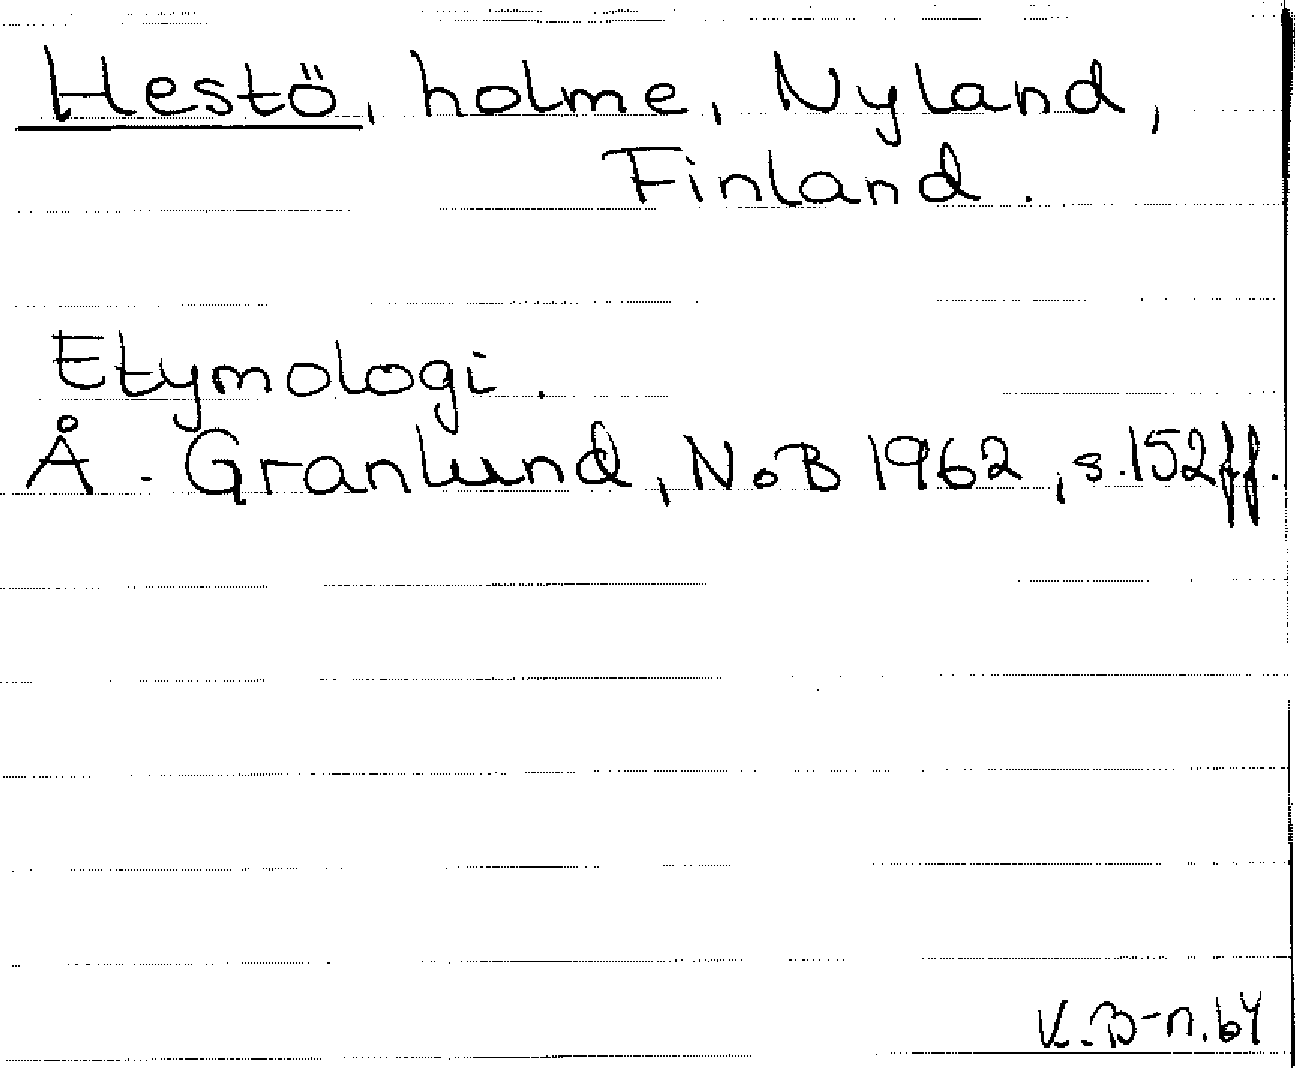 Hestö, holme, Nyland,
Finland.
Etymologi.
Å. Granlund, NoB 1962, s. 152 ff.
K. B-n. 64